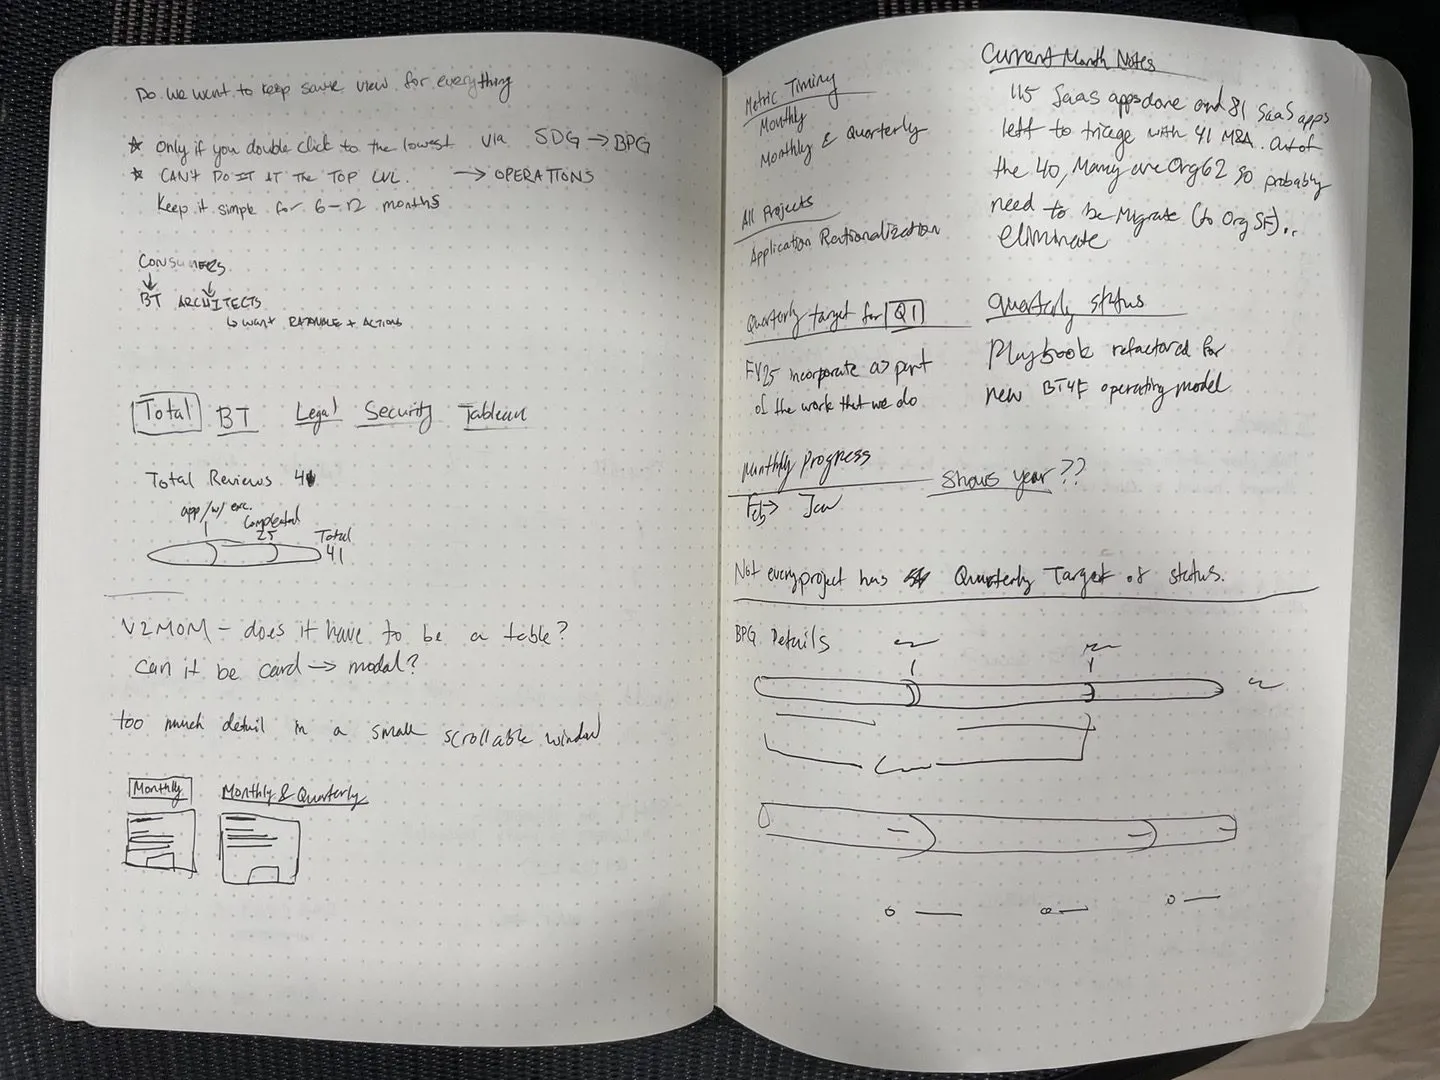 Do we want to keep same view for everything
★ Only if you double click to the lowest via SDG → BPG
★ CAN'T DO IT AT THE TOP LVL. → OPERATIONS
Keep it simple for 6-12 months
CONSUMERS
BT ARCHITECTS
↳ WANT RATIONALE + ACTIONS
Total BT Legal Security Tableau
Total Reviews 41
app/w/ exc.
Completed
25
Total
41
V2MOM - does it have to be a table?
Can it be card → modal?
too much detail in a small scrollable window
Monthly Monthly & Quarterly
Metric Timing
Monthly
Monthly & Quarterly
All Projects
Application Rationalization
Quarterly target for Q1
FY25 incorporate as part
of the work that we do
Monthly Progress
Feb → Jan
Shows year??
Current Month Notes
115 SaaS apps done and 81 SaaS apps
left to triage with 41 M&A. out of
the 40, Many are Org62 so probably
need to be Migrate (to Org SF)..
eliminate
Quarterly status
Playbook refactored for
new BT4F operating model
Not every project has Quarterly Target of status.
BPG Details